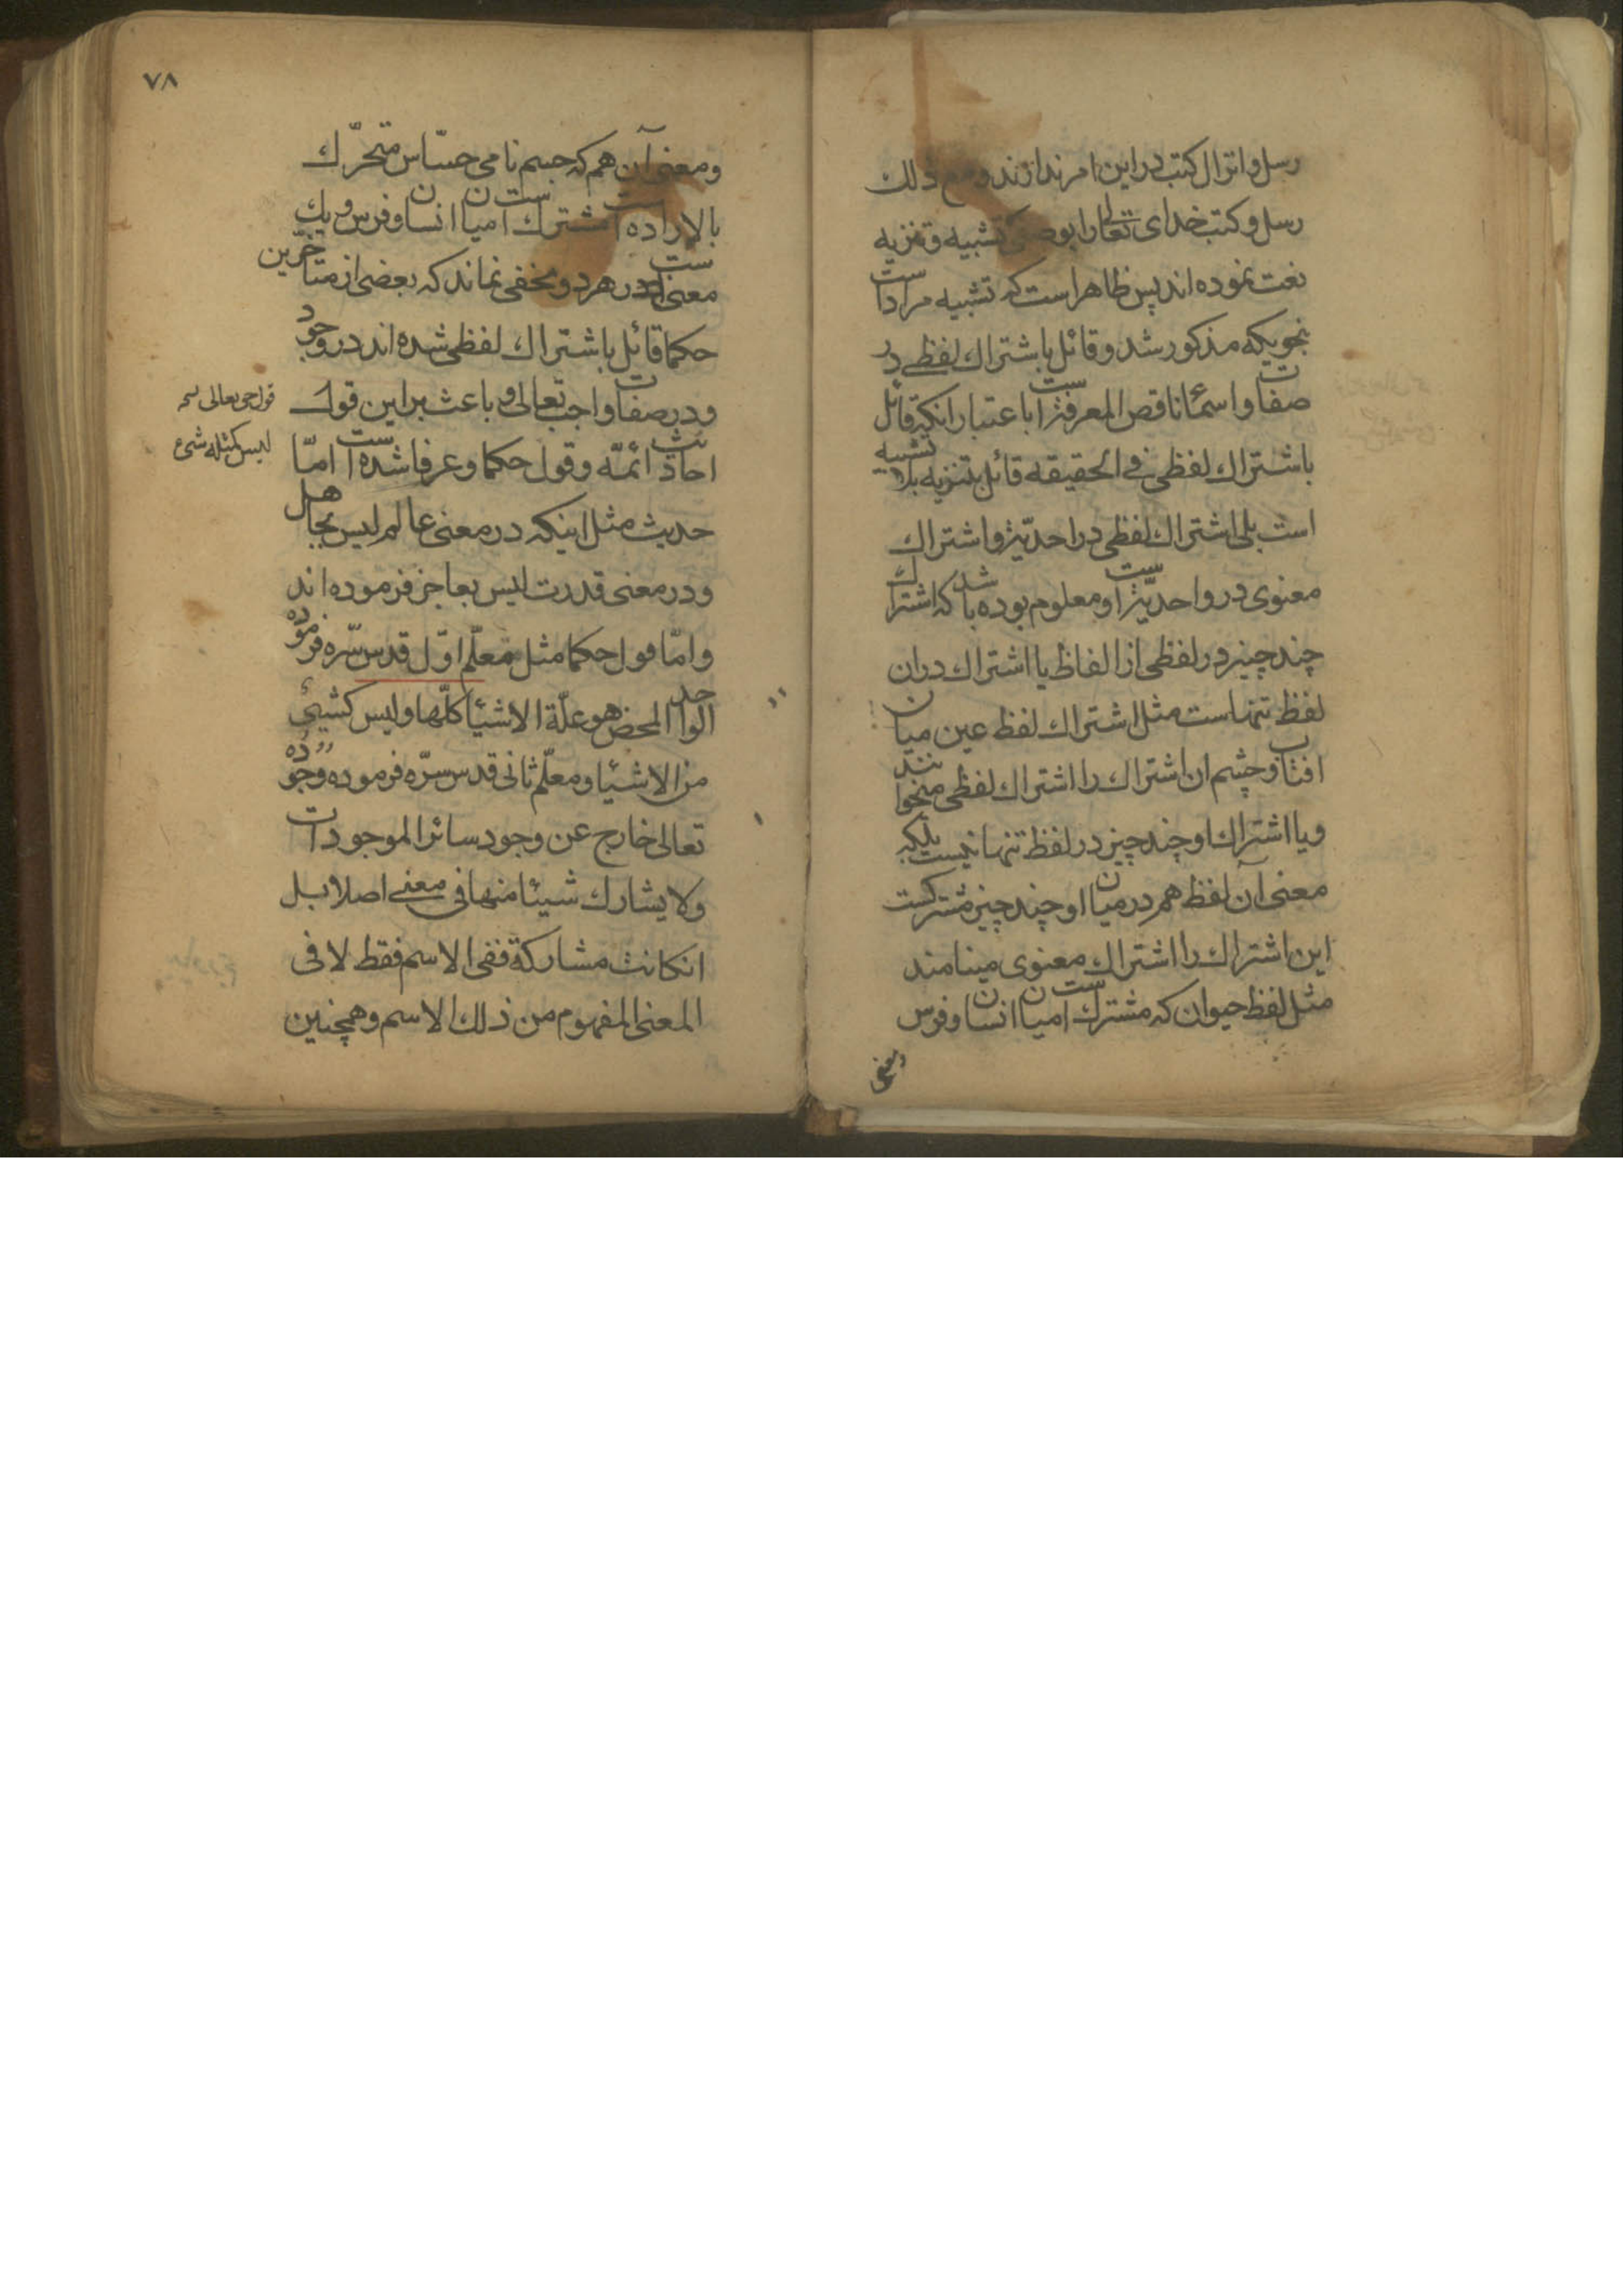 رسل و انزال کتب در این امر ندارند و مع ذلک
رسل و کتب خدای تعالی را بوصف تشبیه و تنزیه
نعت نموده اند پس ظاهر است که تشبیه مراد است
بنحویکه مذکور شد و قائل باشتراک لفظی در
صفات و اسمٔا ناقص المعرفة است باعتبار انکه قائل
باشتراک لفظی فی الحقیقه قائل بتنزیه بلا تشبیه
است بلی اشتراک لفظی در احدیّة و اشتراک
معنوی در واحدیّة است و معلوم بوده باشد که اشتراک
چند چیز در لفظی از الفاظ یا اشتراک دران
لفظ تنهاست مثل اشتراک لفظ عین میان
افتاب و چشم ان اشتراک را اشتراک لفظی میخوانند
و یا اشتراک او چند چیز در لفظ تنها نیست بلکه
معنی آن لفظ هم در میان او چند چیز مشترکست
این اشتراک را اشتراک معنوی مینامند
مثل لفظ حیوان که مشترک است میان انسان و فرس
ومعنی
٧٨
و معنی آن هم که جسم نامی حسّاس متحرّک
بالاراده است مشترک است میان انسان و فرس و یک
معنی است در هر دو مخفی نماند که بعضی از متأخرین
حکما قائل باشتراک لفظی شده اند در وجود
و در صفات واجب تعالی و باعث بر این قول
احادیث ائمّه و قول حکما و عرفا شده است امّا
حدیث مثل اینکه در معنی عالم لیس بجاهل
و در معنی قدرت لیس بعاجز فرموده اند
و امّا قول حکما مثل معلّم اوّل قدس سّره فرموده
الواحد المحض هو علّة الاشیٔا کلّها و لیس کشیٔ
من الاشیٔا و معلّم ثانی قدس سرّه فرموده وجوده
تعالی خارج عن وجود سائر الموجودات
و لا یشارک شیئا منها فی معنی اصلا بل
انکانت مشارکة ففی الاسم فقط لا فی
المعنی المفهوم من ذلک الاسم و همچنین
قول حق تعالی
لیس کمثله شیء